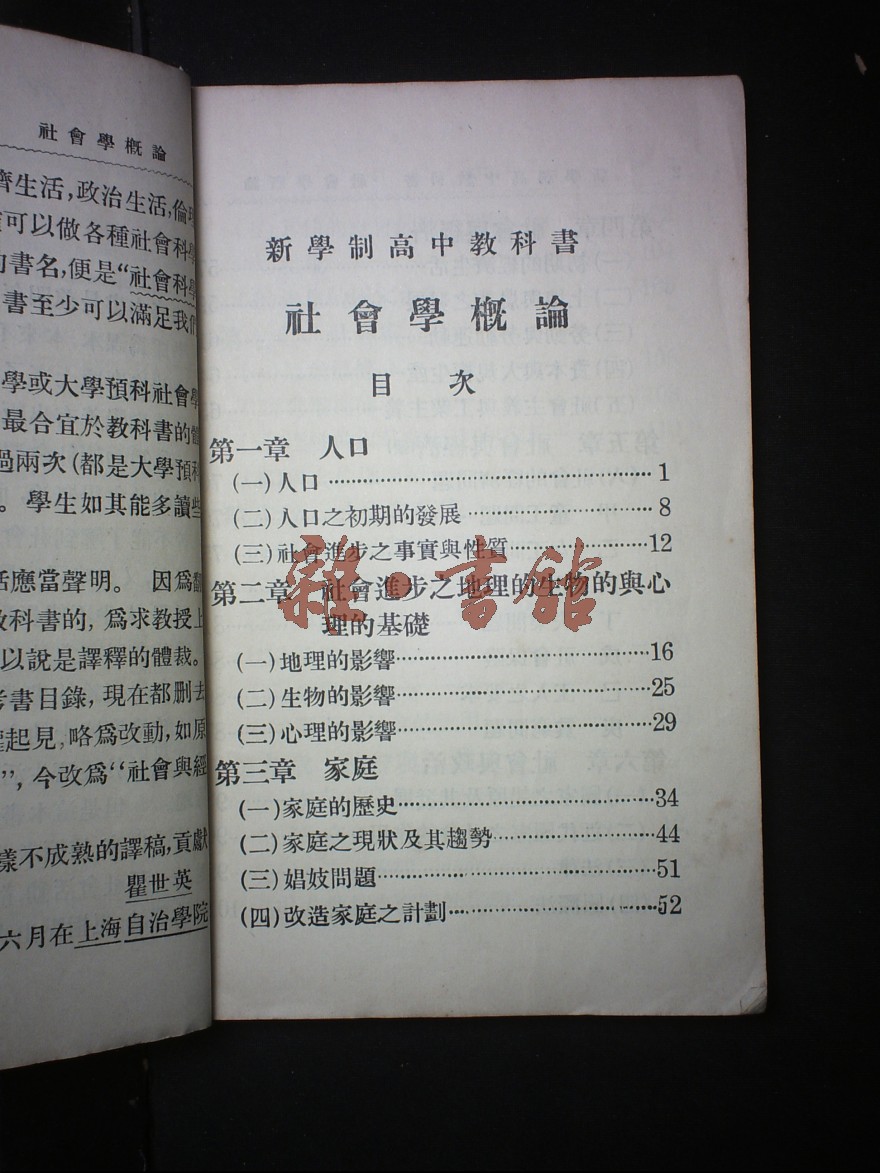 社會學概論
濟生活,政治生活,倫理
可以做各種社會科學
的書名,便是“社會科學
書至少可以滿足我們
學或大學預科社會學
最合宜於教科書的體
過兩次(都是大學預科
。學生如其能多讀些
話應當聲明。 因爲翻
教科書的,爲求教授上
以說是譯釋的體裁。
考書目錄,現在都删去
起見,略爲改動,如原
”,今改爲“社會與經
樣不成熟的譯稿,貢獻
瞿世英
六月在上海自治學院
新學制高中教科書
社會學概論
目次
第一章 人口
(一)人口 1
(二)人口之初期的發展 8
(三)社會進步之事實與性質 12
第二章 社會進步之地理的生物的與心
理的基礎
(一)地理的影響 16
(二)生物的影響 25
(三)心理的影響 29
第三章 家庭
(一)家庭的歷史 34
(二)家庭之現狀及其趨勢 44
(三)娼妓問題 51
(四)改造家庭之計劃 52
雜·書館